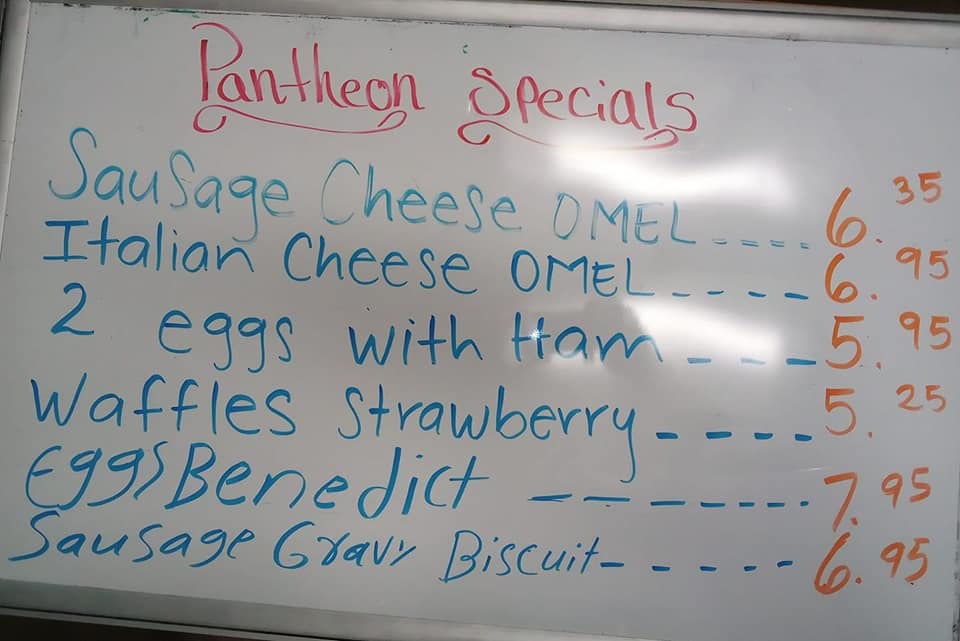 Pantheon Specials
Sausage Cheese OMEL ---- 6.35
Italian Cheese OMEL ---- 6.95
2 eggs with Ham --- 5.95
Waffles Strawberry ---- 5.25
Eggs Benedict -------- 7.95
Sausage Gravy Biscuit ------ 6.95